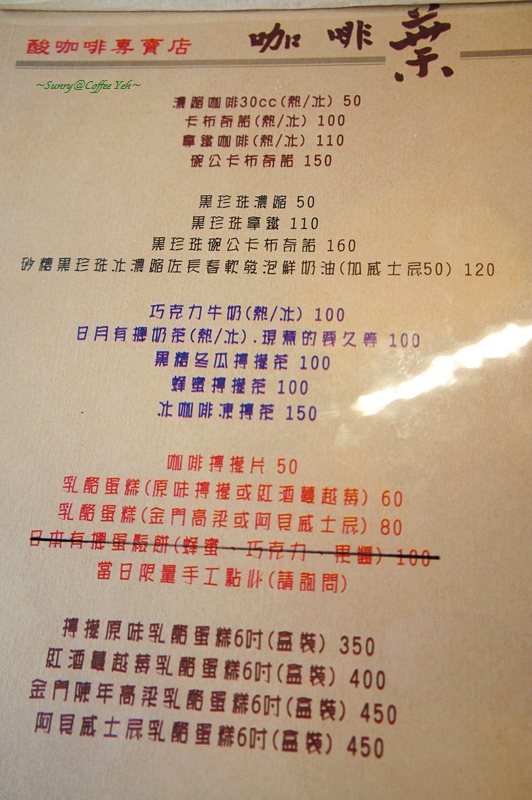 酸咖啡專賣店
咖啡葉
~Sunry@Coffee Yeh~
濃縮咖啡30cc(熱/冰) 50
卡布奇諾(熱/冰) 100
拿鐵咖啡(熱/冰) 110
碗公卡布奇諾 150
黑珍珠濃縮 50
黑珍珠拿鐵 110
黑珍珠碗公卡布奇諾 160
砂糖黑珍珠冰濃縮佐長春軟發泡鮮奶油(加威士忌50) 120
巧克力牛奶(熱/冰) 100
日月有機奶茶(熱/冰).現煮的要久等 100
黑糖冬瓜檸檬茶 100
蜂蜜檸檬茶 100
冰咖啡凍檸茶 150
咖啡檸檬片 50
乳酪蛋糕(原味檸檬或紅酒蔓越莓) 60
乳酪蛋糕(金門高梁或阿貝威士忌) 80
日本有機蛋鬆餅(蜂蜜、巧克力、果醬) 100
當日限量手工點心(請詢問)
檸檬原味乳酪蛋糕6吋(盒裝) 350
紅酒蔓越莓乳酪蛋糕6吋(盒裝) 400
金門陳年高梁乳酪蛋糕6吋(盒裝) 450
阿貝威士忌乳酪蛋糕6吋(盒裝) 450